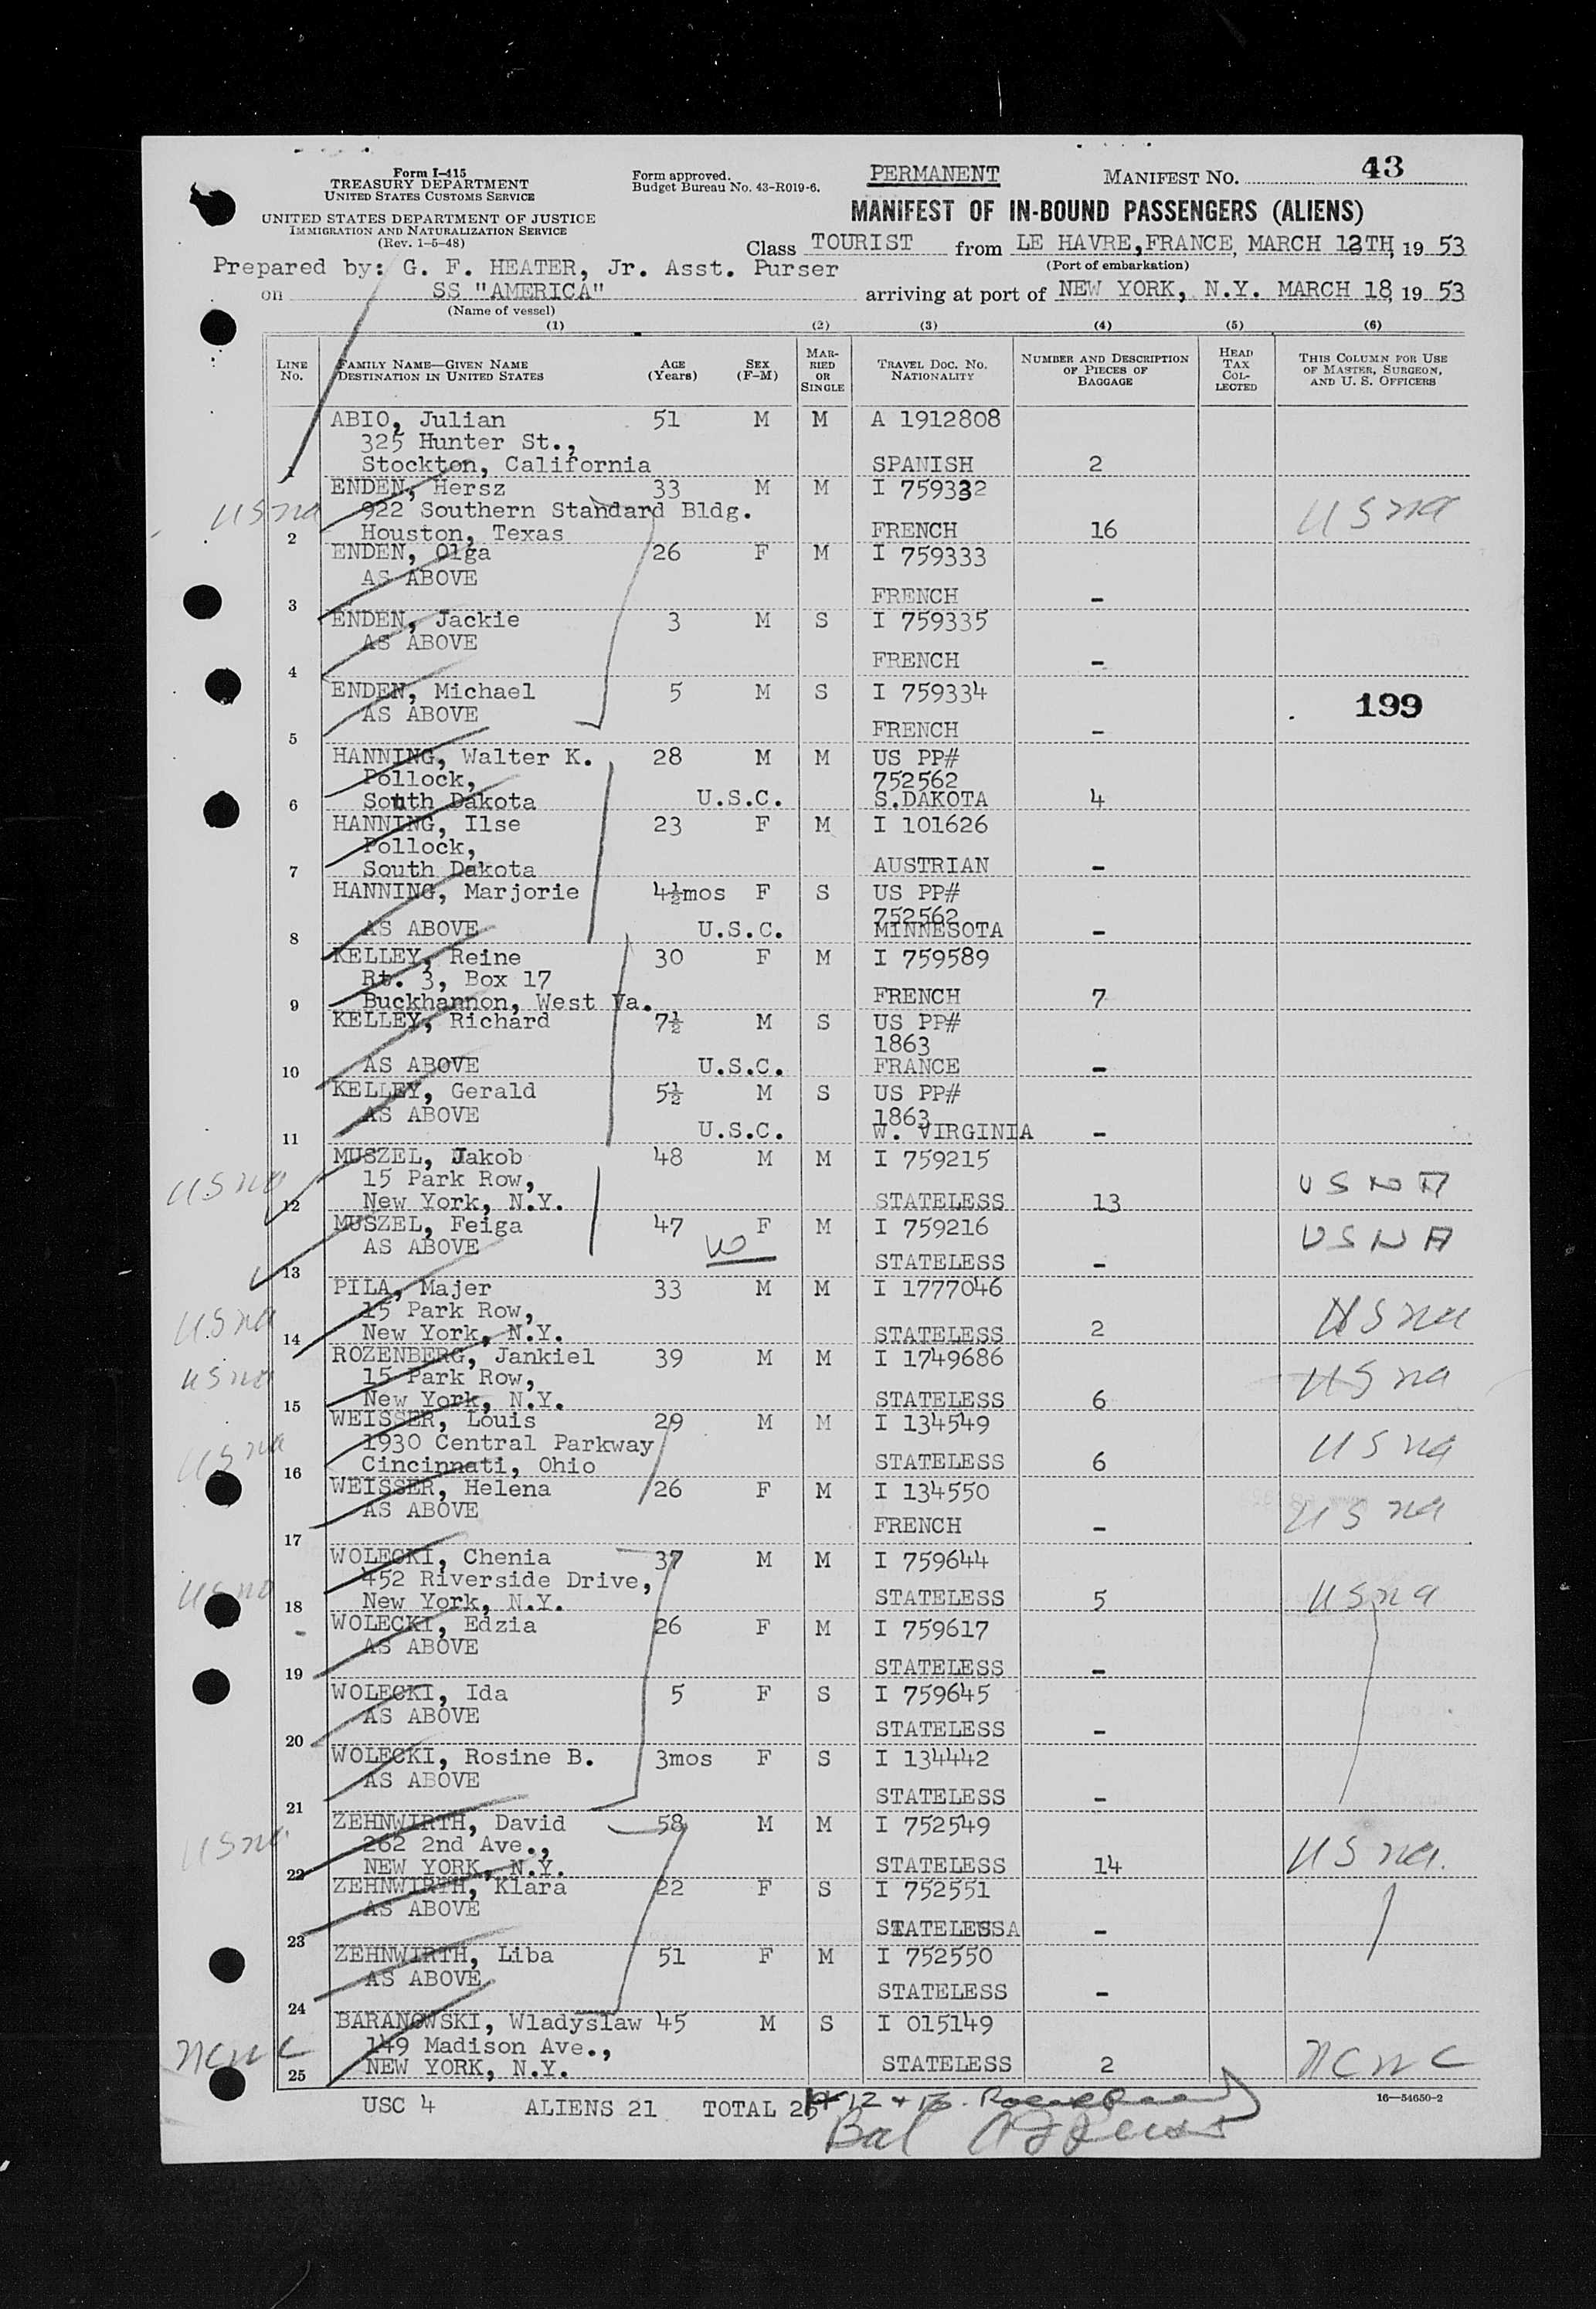 Form I-415
TREASURY DEPARTMENT
UNITED STATES CUSTOMS SERVICE
UNITED STATES DEPARTMENT OF JUSTICE
IMMIGRATION AND NATURALIZATION SERVICE
(Rev. 1-5-48)
Form approved.
Budget Bureau No. 43-R019-6.
PERMANENT
MANIFEST NO. 43
MANIFEST OF IN-BOUND PASSENGERS (ALIENS)
Class TOURIST from LE HAVRE, FRANCE, MARCH 12TH, 19 53
(Port of embarkation)
Prepared by: G. F. HEATER, Jr. Asst. Purser
on SS "AMERICA" arriving at port of NEW YORK, N.Y. MARCH 18, 19 53
(Name of vessel)
(1) (2) (3) (4) (5) (6)
LINE No. FAMILY NAME—GIVEN NAME DESTINATION IN UNITED STATES AGE (Years) SEX (F-M) MARRIED OR SINGLE TRAVEL DOC. NO. NATIONALITY NUMBER AND DESCRIPTION OF PIECES OF BAGGAGE HEAD TAX COLLECTED THIS COLUMN FOR USE OF MASTER, SURGEON, AND U. S. OFFICERS
ABIO, Julian 51 M M A 1912808
325 Hunter St.,
1 Stockton, California SPANISH 2
ENDEN, Hersz 33 M M I 759332
usna 922 Southern Standard Bldg. usna
2 Houston, Texas FRENCH 16
ENDEN, Olga 26 F M I 759333
AS ABOVE
3 FRENCH -
ENDEN, Jackie 3 M S I 759335
AS ABOVE
4 FRENCH -
ENDEN, Michael 5 M S I 759334
AS ABOVE 199
5 FRENCH -
HANNING, Walter K. 28 M M US PP#
Pollock, 752562
6 South Dakota U.S.C. S.DAKOTA 4
HANNING, Ilse 23 F M I 101626
Pollock,
7 South Dakota AUSTRIAN -
HANNING, Marjorie 4½mos F S US PP#
752562
8 AS ABOVE U.S.C. MINNESOTA -
KELLEY, Reine 30 F M I 759589
Rt. 3, Box 17
9 Buckhannon, West Va. FRENCH 7
KELLEY, Richard 7½ M S US PP#
1863
10 AS ABOVE U.S.C. FRANCE -
KELLEY, Gerald 5½ M S US PP#
AS ABOVE 1863
11 U.S.C. W. VIRGINIA -
MUSZEL, Jakob 48 M M I 759215
usna 15 Park Row, USNA
12 New York, N.Y. STATELESS 13
MUSZEL, Feiga 47 F M I 759216
AS ABOVE USNA
13 STATELESS -
PILA, Majer 33 M M I 1777046
usna 15 Park Row, usna
14 New York, N.Y. STATELESS 2
ROZENBERG, Jankiel 39 M M I 1749686
usna 15 Park Row, usna
15 New York, N.Y. STATELESS 6
WEISSER, Louis 29 M M I 134549
usna 1930 Central Parkway usna
16 Cincinnati, Ohio STATELESS 6
WEISSER, Helena 26 F M I 134550
AS ABOVE usna
17 FRENCH -
WOLECKI, Chenia 37 M M I 759644
usna 452 Riverside Drive, usna
18 New York, N.Y. STATELESS 5
WOLECKI, Edzia 26 F M I 759617
AS ABOVE
19 STATELESS -
WOLECKI, Ida 5 F S I 759645
AS ABOVE
20 STATELESS -
WOLECKI, Rosine B. 3mos F S I 134442
AS ABOVE
21 STATELESS -
ZEHNWIRTH, David 58 M M I 752549
usna 262 2nd Ave., usna.
22 NEW YORK, N.Y. STATELESS 14
ZEHNWIRTH, Klara 22 F S I 752551
AS ABOVE
23 STATELESS -
ZEHNWIRTH, Liba 51 F M I 752550
AS ABOVE
24 STATELESS -
BARANOWSKI, Wladyslaw 45 M S I 015149
ncwc 149 Madison Ave., ncwc
25 NEW YORK, N.Y. STATELESS 2
USC 4 ALIENS 21 TOTAL 25 16—54650-2
Bal